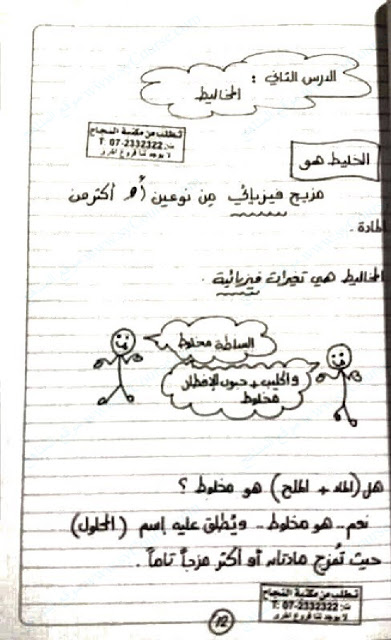 الدرس الثاني :
المخاليط
تطلب من مكتبة النجاح
ت: 07-2332322 :T
لا يوجد لنا فروع اخرى
الخليط هو
مزيج فيزيائي من نوعين أو أكثر من
المادة .
المخاليط هي تغيرات فيزيائية .
السلطة مخلوط
والحليب + حبوب الإفطار
مخلوط
هل (الماء + الملح) هو مخلوط ؟
نعم .. هو مخلوط .. ويُطلق عليه إسم (المحلول)
حيث تُمزج مادتان أو أكثر مزجاً تاماً .
تطلب من مكتبة النجاح
ت: 07-2332322 :T
لا يوجد لنا فروع اخرى
12